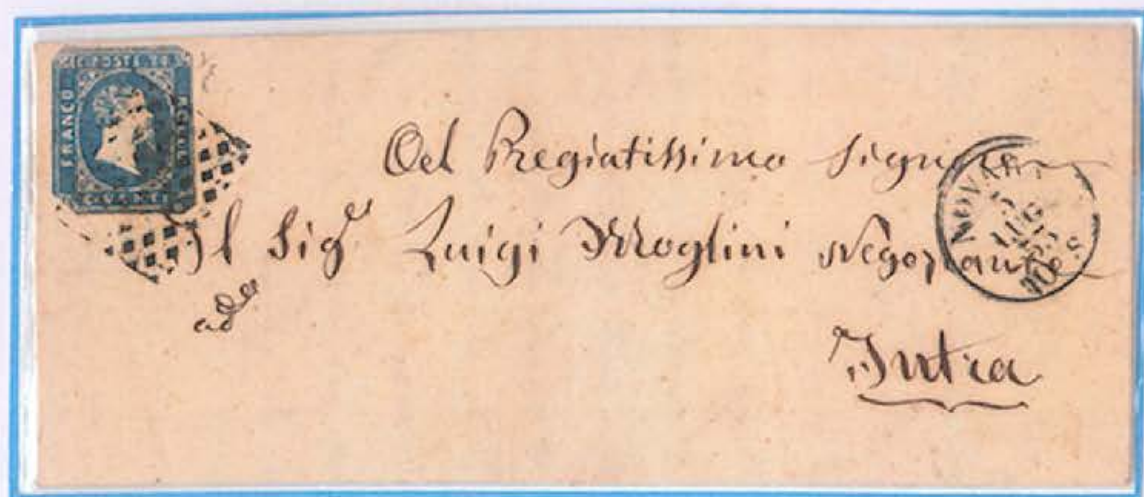 C. POSTE 20
FRANCO
BOLLO
Al Pregiatissimo Signore
Il Sigr Luigi Moglini Negoziante
NOVARA
5
LUG
10 S.
Intra